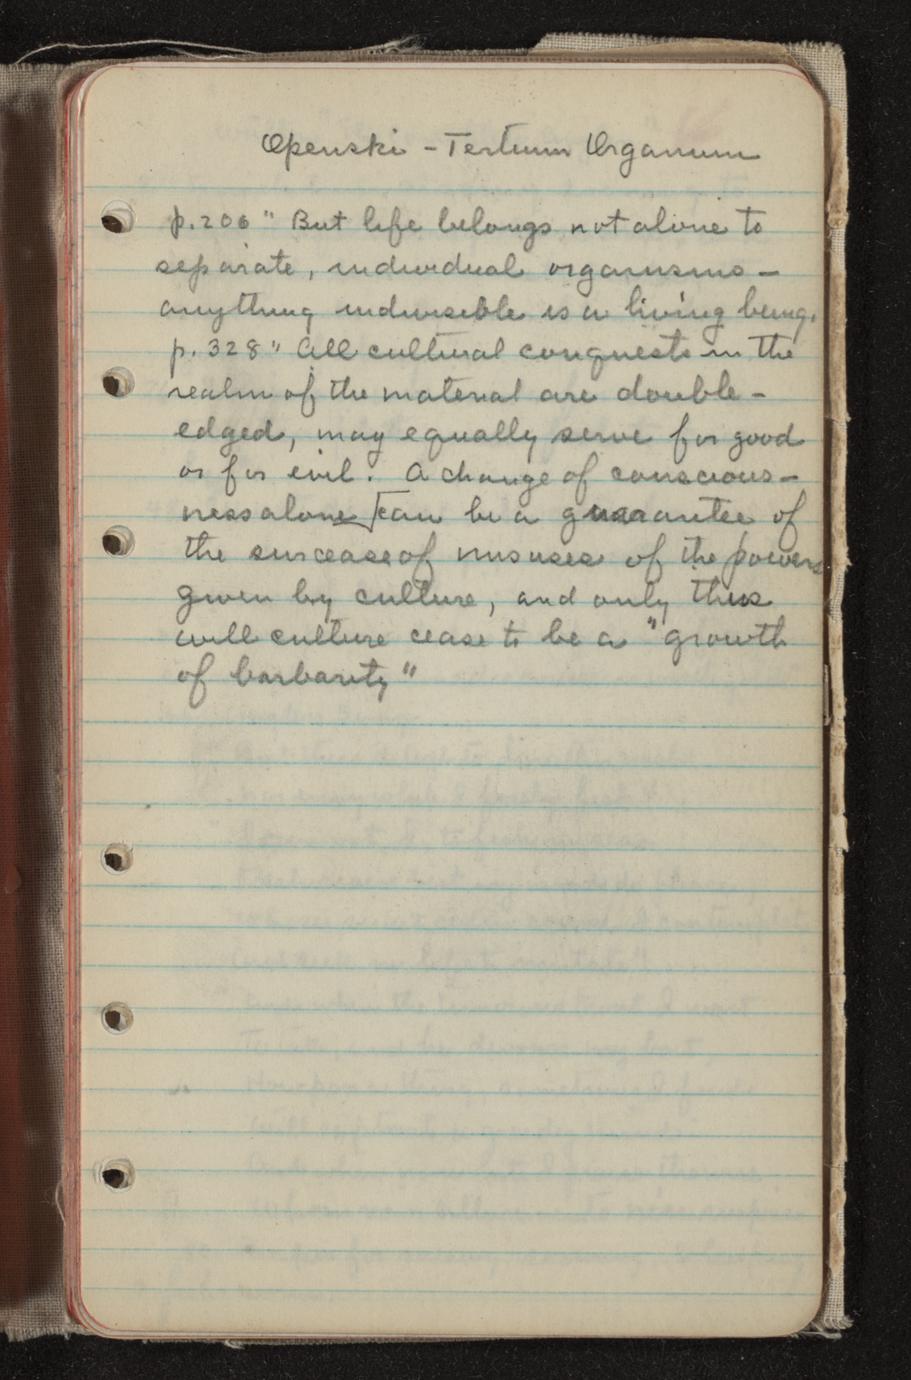 Openski - Tertium Organum
p. 206 " But life belongs not alone to
separate, individual organisms -
anything indivisible is a living being.
p. 328 " All cultural conquests in the
realm of the material are double -
edged, may equally serve for good
or for evil. A change of conscious-
ness alone can be a guarantee of
the surcease of misuses of the powers
given by culture, and only thus
will culture cease to be a "growth
of barbarity"